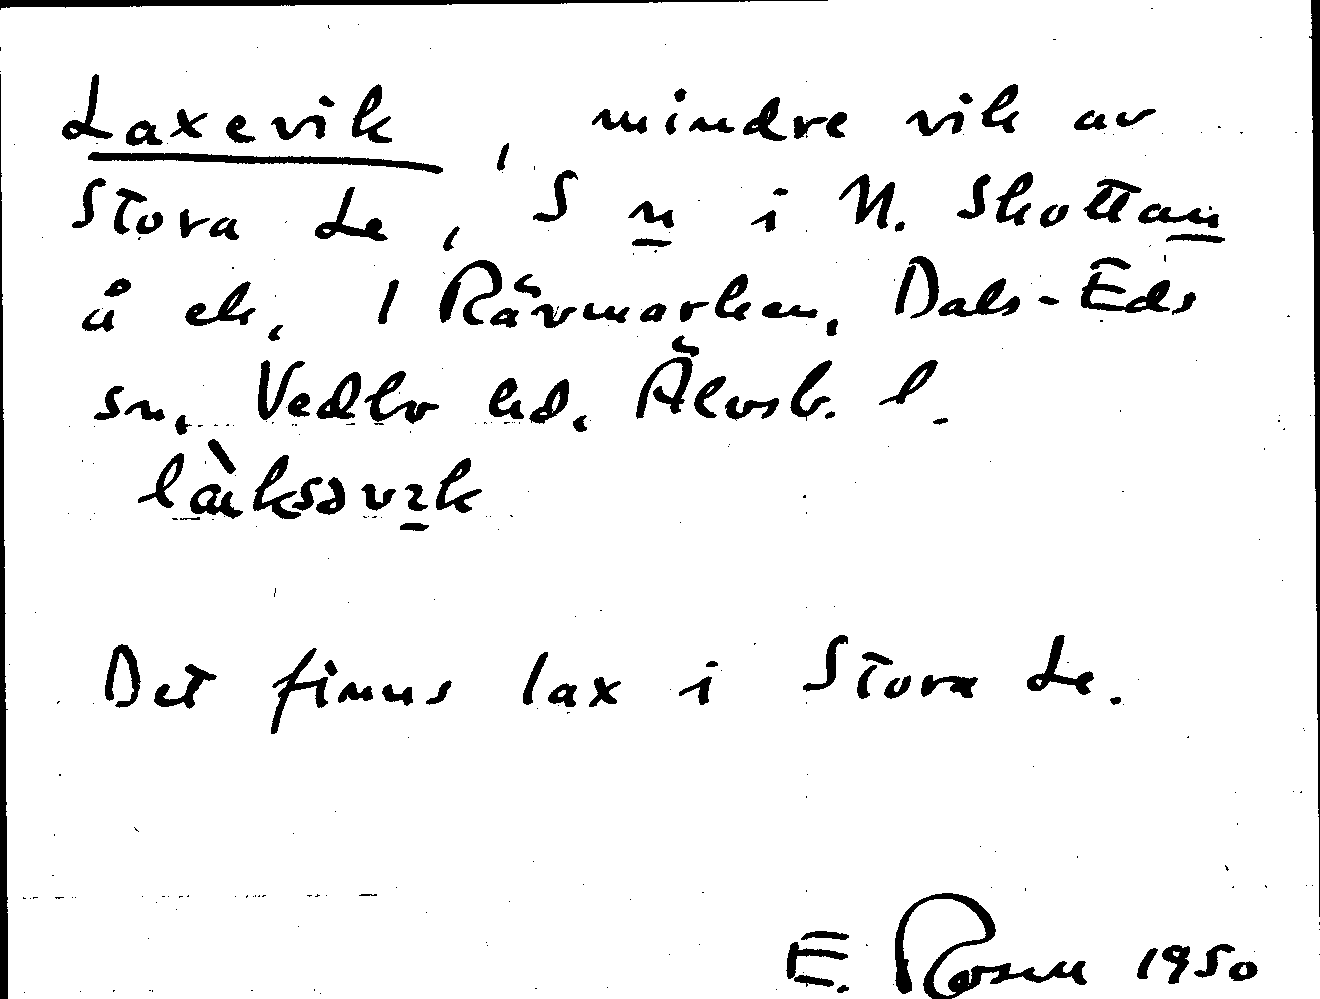 Laxevik, mindre vik av
Stora Le, S n i N. Skottan
å ek. 1 Rävmarken, Dals-Eds
sn, Vedbo hd. Älvsb. l.
làksəvɪk
Det finns lax i Stora Le.
E. Rosell 1950